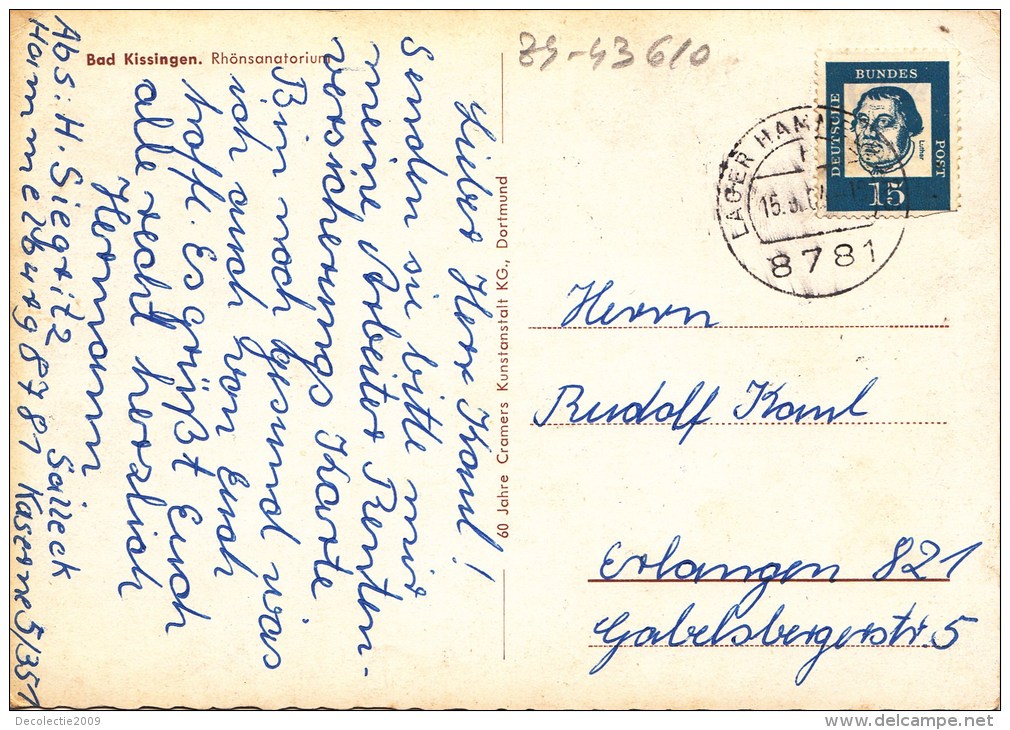 Bad Kissingen. Rhönsanatorium
Z9-43610
Lieber Herr Kaul!
Senden sie bitte mir
meine Arbeiter Renten-
versicherungs Karte
Bin noch gesund was
ich auch von Euch
hoffe. Es grüßt Euch
alle recht herzlich
Hermann
Abs: H. Siegritz Saileck
Hammelburg 8781 Kaserne 5/351
60 Jahre Cramers Kunstanstalt KG., Dortmund
DEUTSCHE BUNDES POST
Luther
15
LAGER HAMMELBURG
8781
Herrn
Rudolf Kaul
Erlangen 821
Gabelsbergerstr. 5
Decolectie2009
www.delcampe.net